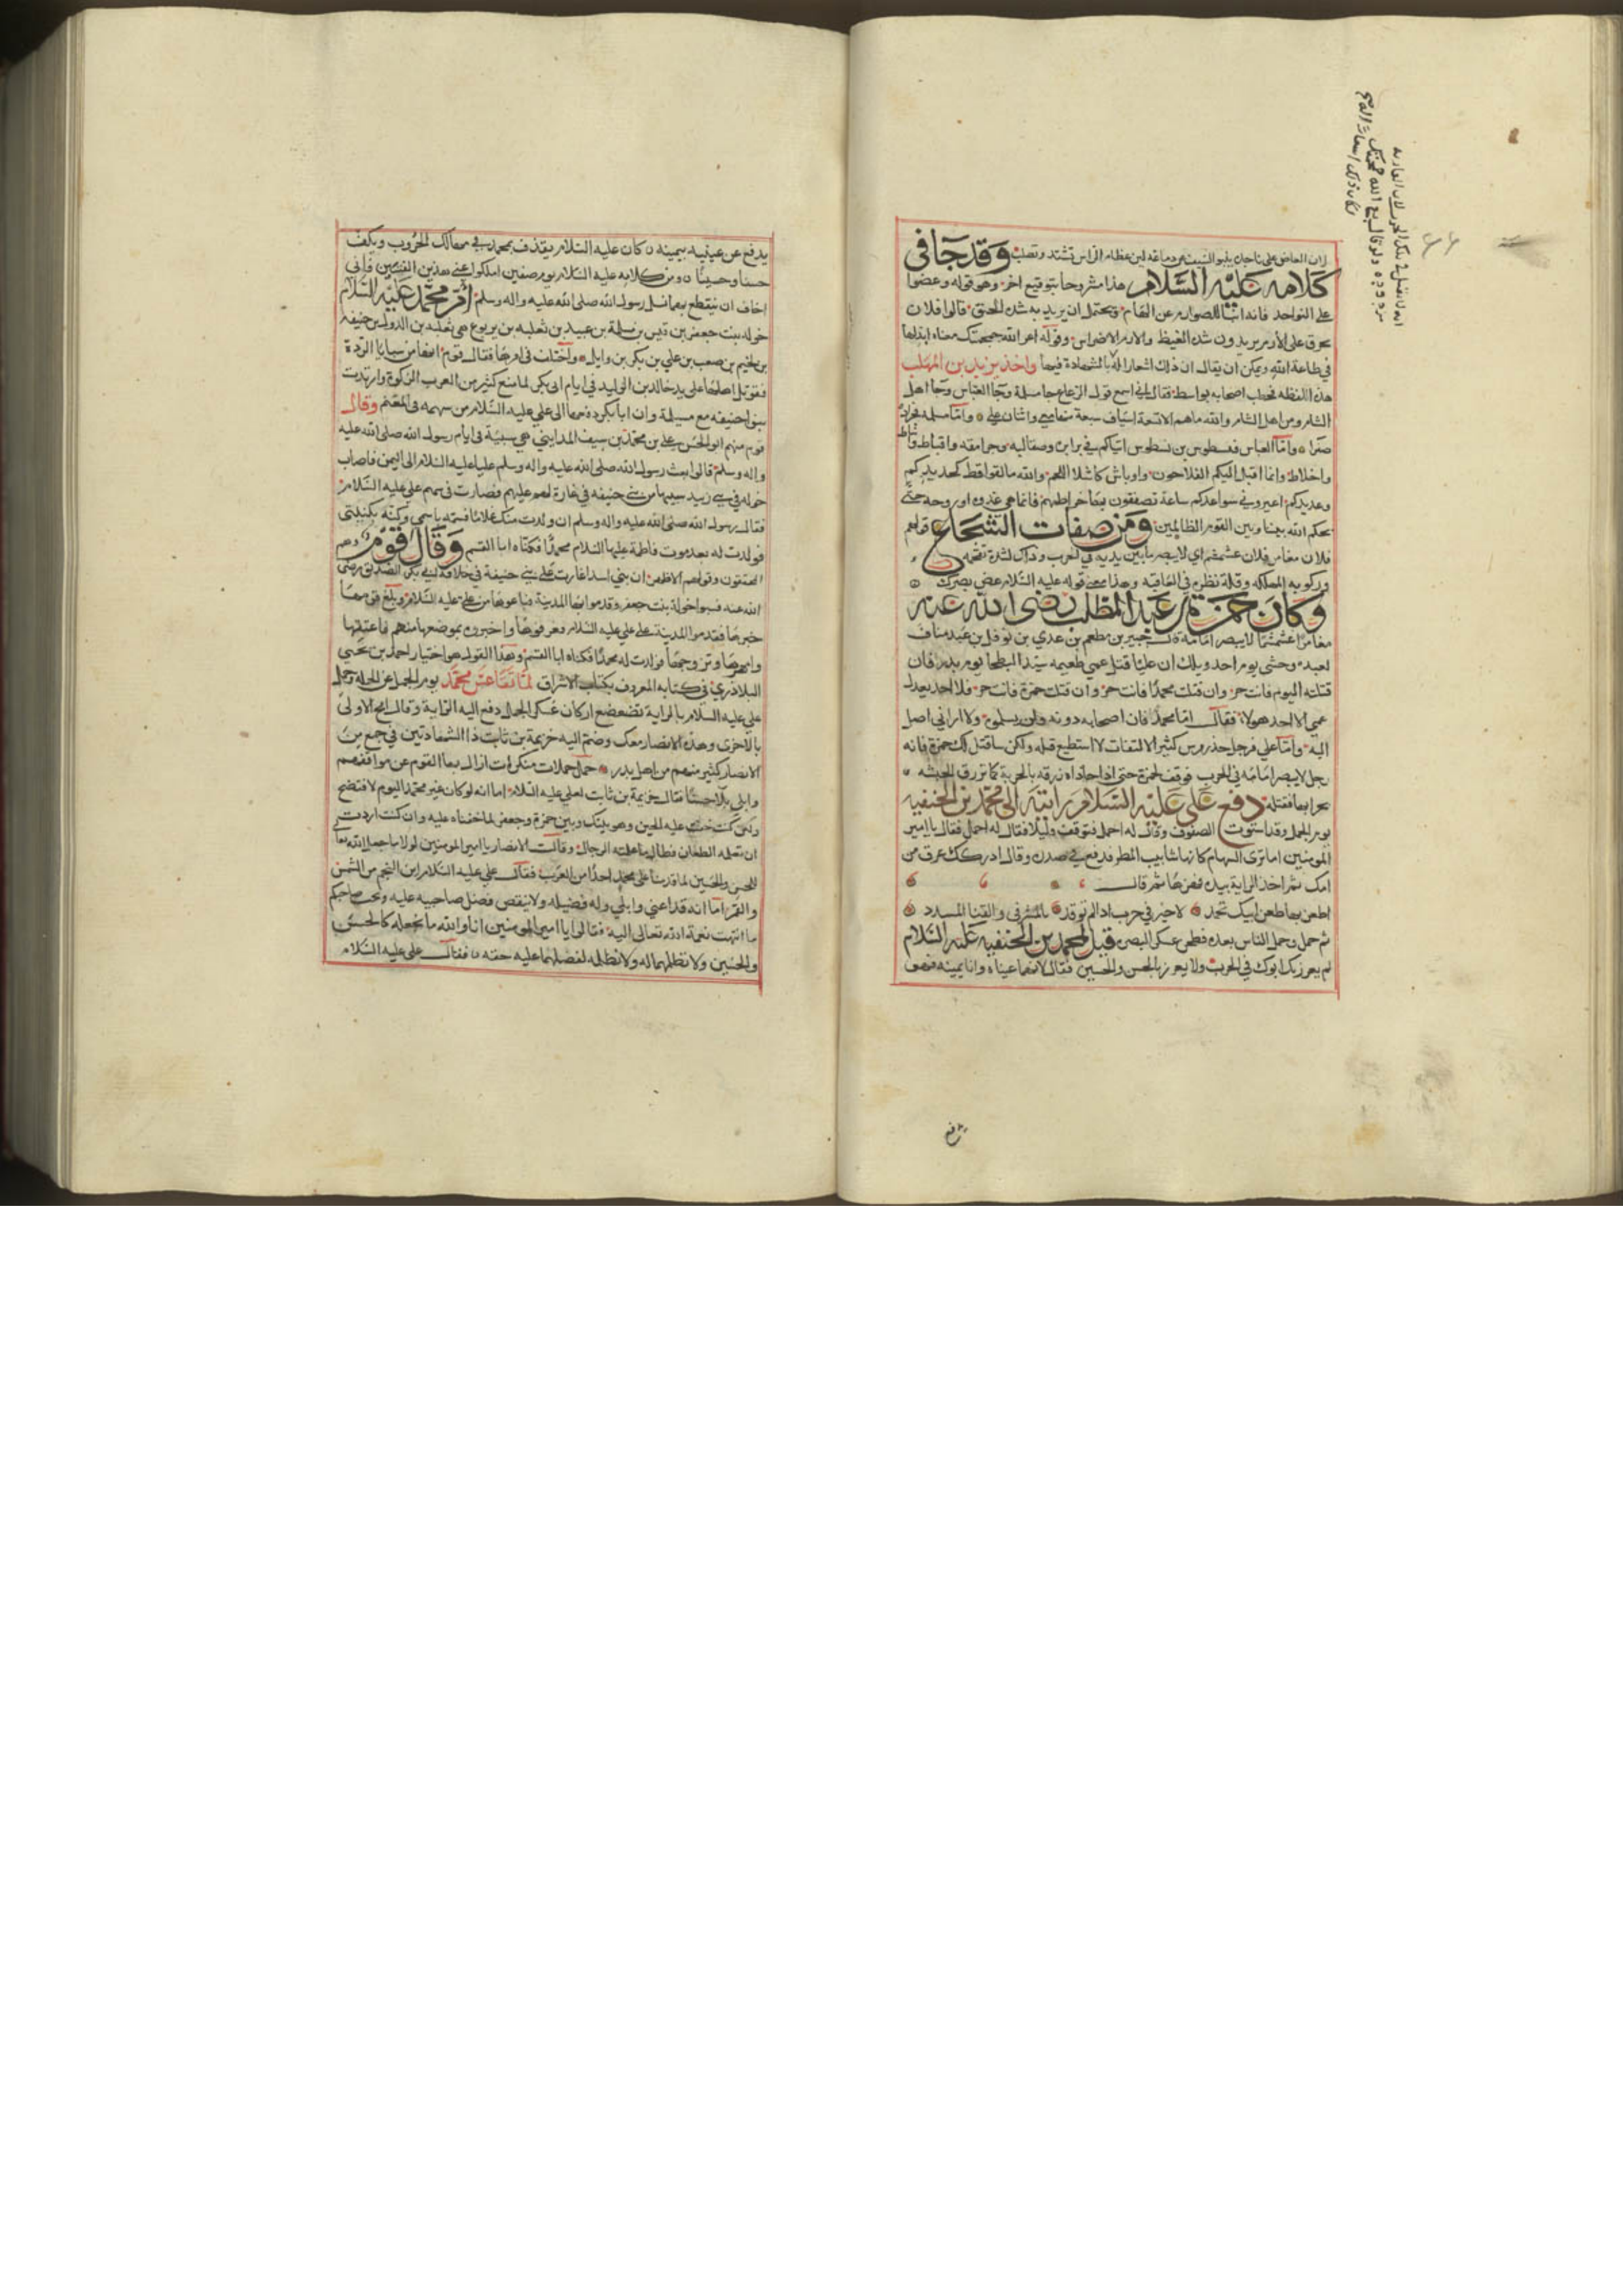 ان العاض على ناجذيه ينبو السيف عن دماغه لان عظام الراس تشتد وتصلب وقد جا في
كلامه عليه السلام هذا مشروحا بتوقيع اخر وهو قوله وعضوا
على النواجذ فانه انبا للصوارم عن الهام ويحتمل ان يريد به شدة الحنق قالوا فلان
يحرق على الأرم يريدون شدة الغيظ والارم الاضراس وقوله اعر الله جمجمتك معناه ابذلها
في طاعة الله ويمكن ان يقال ان ذلك اشعار له بالشهادة فيها واخذ يزيد بن المهلب
هذه اللفظه فخطب اصحابه بواسط فقال اني اسمع قول الرعاع جا مسلمة وجا العباس وجا اهل
الشام ومن اهل الشام والله ما هم الا تسعة اسياف سبعة منها معي واثنان علي واما مسلمه فجرادة
صفرا واما العباس فنسطوس بن نسطوس اتاكم في برابرة وصقالبه وجرامقه واقباط وانباط
واخلاط وانما اقبل اليكم الفلاحون واوباش كاشلا اللحم والله ما لقوا قط كحديدكم
وعديدكم اعيروني سواعدكم ساعة تصفقون بها خراطيمهم فانما هي غدوه او روحة حتى
يحكم الله بيننا وبين القوم الظالمين ومن صفات الشجاع قولهم
فلان مغامر فلان غشمشم اي لا يبصر ما بين يديه في الحرب وذلك لشدة تقحمه
وركوبه المهلكه وقلة نظره في العاقبه وهذا معنى قوله عليه السلام غض بصرك
وكان حمزة بن عبد المطلب رضي الله عنه
مغامرا غشمشما لا يبصر امامه قال جبير بن مطعم بن عدي بن نوفل بن عبد مناف
لعبده وحشي يوم احد ويلك ان عليا قتل عمي طعيمه سيد البطحا يوم بدر فان
قتلته اليوم فانت حر وان قتلت محمدا فانت حر وان قتلت حمزة فانت حر فلا احد يعدل
عمي الا احد هولا فقال اما محمد فان اصحابه دونه ولن يسلموه ولا اراني اصل
اليه واما علي فرجل حذر مرس كثير الالتفات لا استطيع قتله ولكن ساقتل لك حمزة فانه
رجل لا يبصر امامه في الحرب فوقف لحمزة حتى اذا حاذاه زرقه بالحربة كما تزرق الحبشه
بحرابها فقتله دفع علي عليه السلام رايته الى محمد بن الحنفيه
يوم الجمل وقد استوت الصفوف وقال له احمل فتوقف قليلا فقال له احمل فقال يا امير
المومنين اما ترى السهام كانها شابيب المطر فدفع في صدره وقال ادركك عرق من
امك ثم اخذ الراية بيده فهزها ثم قال
اطعن بها طعن ابيك تحمد لا خير في حرب اذا لم توقد بالمشرفي والقنا المسدد
ثم حمل وحمل الناس بعده فطحن عسكر البصره قيل لمحمد بن الحنفيه عليه السلام
لم يغرر بك ابوك في الحرب ولا يغرر بالحسن والحسين فقال لانهما عيناه وانا يمينه فهو
يدفع عن عينيه بيمينه كان عليه السلام يقذف بمحمد في مهالك الحروب ويكف
حسنا وحسينا ومن كلامه عليه السلام يوم صفين املكوا عني هذين الفتيين فاني
اخاف ان ينقطع بهما نسل رسول الله صلى الله عليه واله وسلم أم محمد عليه السلام
خوله بنت جعفر بن قيس بن مسلمة بن عبيد بن ثعلبه بن يربوع بن ثعلبه بن الدول بن حنيفه
بن لجيم بن صعب بن علي بن بكر بن وايل واختلف في امرها فقال قوم انها من سبايا الردة
فقوتل اهلها على يد خالد بن الوليد في ايام ابي بكر لما منع كثير من العرب الزكوة وارتدت
بنو حنيفه مع مسيلمة وان ابا بكر دفعها الى علي عليه السلام من سهمه في المغنم وقال
قوم منهم ابو الحسن علي بن محمد بن سيف المدايني هي سبية في ايام رسول الله صلى الله عليه
واله وسلم قالوا بعث رسول الله صلى الله عليه واله وسلم عليا عليه السلام الى اليمن فاصاب
خوله في بني زبيد سبيها من بني حنيفه في غارة لهم عليهم فصارت في سهم علي عليه السلام
فقال رسول الله صلى الله عليه واله وسلم ان ولدت منك غلاما فسمه باسمي وكنه بكنيتي
فولدت له بعد موت فاطمة عليها السلام محمدا فكناه ابا القسم وقال قوم وهم
المحققون وقولهم الاظهر ان بني اسد اغارت على بني حنيفة في خلافة ابي بكر الصديق رضي
الله عنه فسبوا خولة بنت جعفر وقدموا بها المدينة فباعوها من علي عليه السلام وبلغ قومها
خبرها فقدموا المدينة على علي عليه السلام فعرفوها واخبروه بموضعها منهم فاعتقها
وامهرها وتزوجها فولدت له محمدا فكناه ابا القسم وهذا القول هو اختيار احمد بن يحيى
البلاذري في كتابه المعروف بكتاب الاشراف لما تقاعس محمد يوم الجمل عن الحملة وحمل
علي عليه السلام بالراية فضعضع اركان عسكر الجمال دفع اليه الراية وقال امح الاولى
بالاخرى وهذه الانصار معك وضم اليه خزيمة بن ثابت ذا الشهادتين في جمع من
الانصار كثير منهم من اهل بدر حمل حملات منكرات ازال بها القوم عن مواقفهم
وابلى بلا حسنا فقال خزيمة بن ثابت لعلي عليه السلام اما انه لو كان غير محمد اليوم لافتضح
ولئن كنت خفت عليه الحين وهو بينك وبين حمزة وجعفر لما خفناه عليه وان كنت اردت
ان تعلمه الطعان فطال ما علمته الرجال وقالت الانصار يا امير المومنين لولا ما جعل الله تعا
للحسن والحسين لما قدمنا على محمد احدا من العرب فقال علي عليه السلام اين النجم من الشمس
والقمر اما انه قد اغنى وابلى وله فضيله ولا ينقص فضل صاحبيه عليه وحسب صاحبكم
ما انتهت نعمة الله تعالى اليه فقالوا يا امير المومنين انا والله ما نجعله كالحسن
والحسين ولا نظلمهما له ولا نظلمه لفضلهما عليه حقه فقال علي عليه السلام